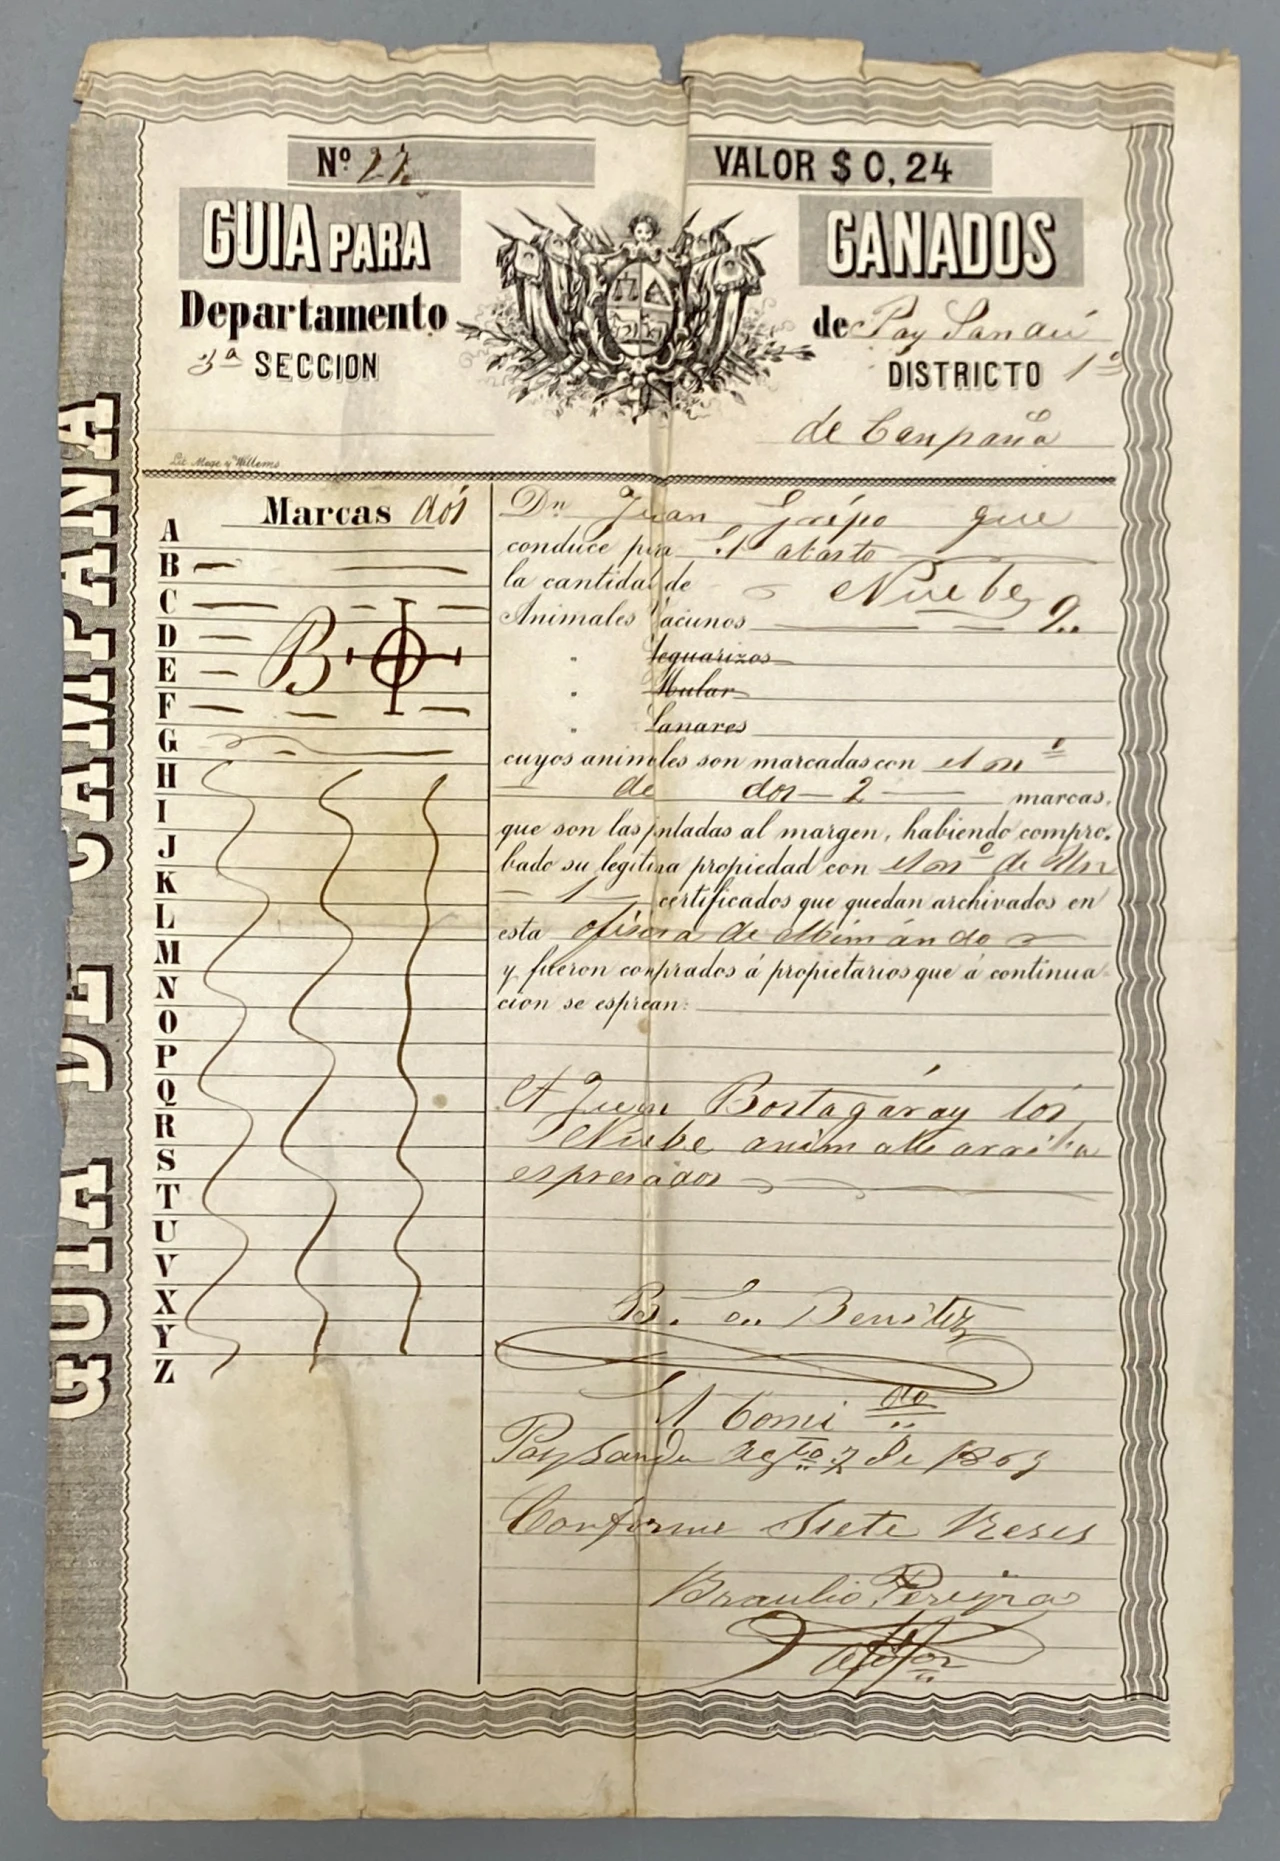 Nº 22
VALOR $ 0,24
GUIA PARA
GANADOS
Departamento
de Pay Sandú
3ª SECCION
DISTRICTO 1º
de Canpaña
Lit. Mege y Willems
GUIA DE CAMPAÑA
Marcas dós
A
B
C
D
E
F
G
H
I
J
K
L
M
N
O
P
Q
R
S
T
U
V
X
Y
Z
B
Dn Juan Gripo que
conduce para El abasto
la cantidad de Nuebe
Animales Vacunos 9..
" Yeguarizos
" Mular
" Lanares
cuyos animales son marcadas con el nº
de dos — 2 — marcas,
que son las pintadas al margen, habiendo compro-
bado su legitima propiedad con el nº de Un
— 1 — certificados que quedan archivados en
esta ofisina de mi mándo
y fueron comprados á propietarios que á continua-
cion se espresan:
A Juan Bortagáray lós
Nuebe animales arriba
espresados
B. Benitez
El Comi do
Paysandu Agto 2 de 1863
Conforme Siete Reses
Braulio Pereyra